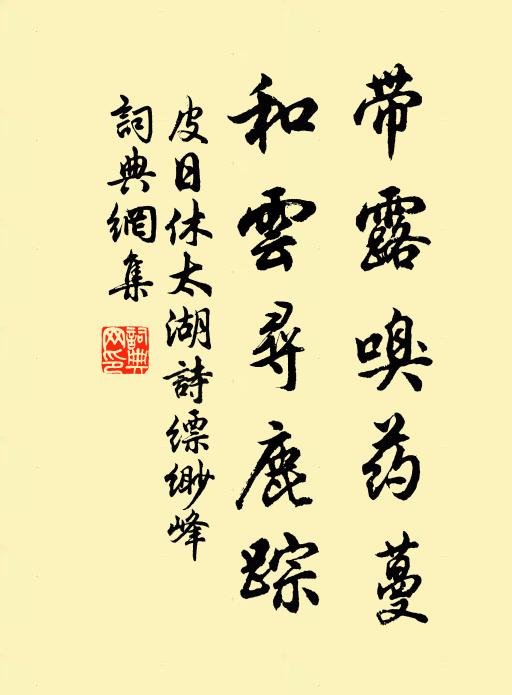 带露嗅药蔓
和雲尋鹿踪
皮日休太湖詩縹缈峰
詞典網集
詞典网印